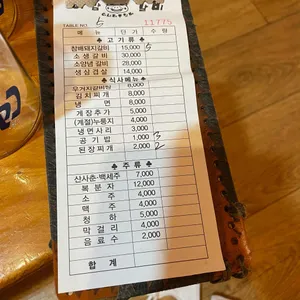 TABLE NO. 5 11775
메 뉴 단 가 수 량
♣ 고 기 류 ♣
참배돼지갈비 15,000 5
소 생 갈 비 30,000
소양념 갈비 28,000
생 삼 겹 살 14,000
♣ 식사메뉴 ♣
우거지갈비탕 8,000
김 치 찌 개 8,000
냉 면 8,000
게 장 추 가 5,000
(계절)누룽지 4,000
냉 면 사 리 3,000
공 기 밥 1,000 3
된 장 찌 개 2,000 2
♣ 주 류 ♣
산사춘·백세주 7,000
복 분 자 12,000
소 주 4,000
맥 주 4,000
청 하 5,000
막 걸 리 4,000
음 료 수 2,000
합 계